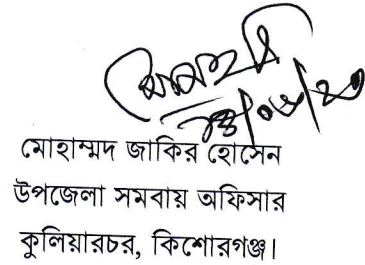 মোহাম্মদ জাকির হোসেন
উপজেলা সমবায় অফিসার
কুলিয়ারচর, কিশোরগঞ্জ।